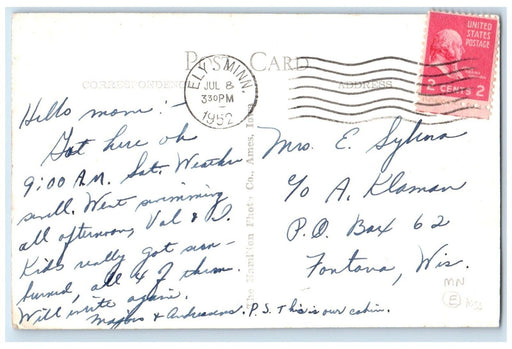 POST CARD
CORRESPONDENCE
ADDRESS
ELY, MINN.
JUL 8
330PM
1952
UNITED
STATES
POSTAGE
2 CENTS 2
Hello mom:-
Got here ok
9:00 A.M. Sat. Weather
swell. Went swimming
all afternoon, Val & I.
Kids really got sun-
burned, all 4 of them.
Will write again.
& P.S. This is our cabin.
The Hamilton Photo Co., Ames, Iowa
Mrs. E. Sylena
c/o A. Klaman
P.O. Box 62
Fontana, Wis.
MN
E